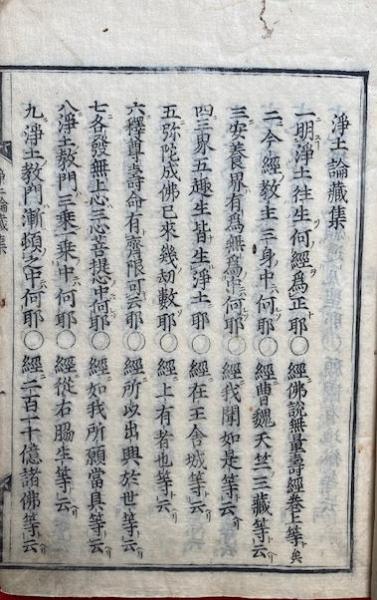 淨土論藏集
一明淨土往生何經爲正耶○經佛説無量壽經卷上等矣
二今經教主三身中何耶○經曹魏天竺三藏等云
三安養界有爲無爲中何耶○經我聞如是等云
四三界五趣生皆生淨土耶○經在王舍城等云
五弥陀成佛已來幾劫數耶○經上有者也等云
六釋尊壽命有齊限可云耶○經所以出興於世等云
七各發無上心三心菩提心中何耶○經如我所願當具等云
八淨土教門三乗一乗中何耶○經從右脇生等云
九淨土教門漸頓之中何耶○經二百一十億諸佛等云
淨土論藏集